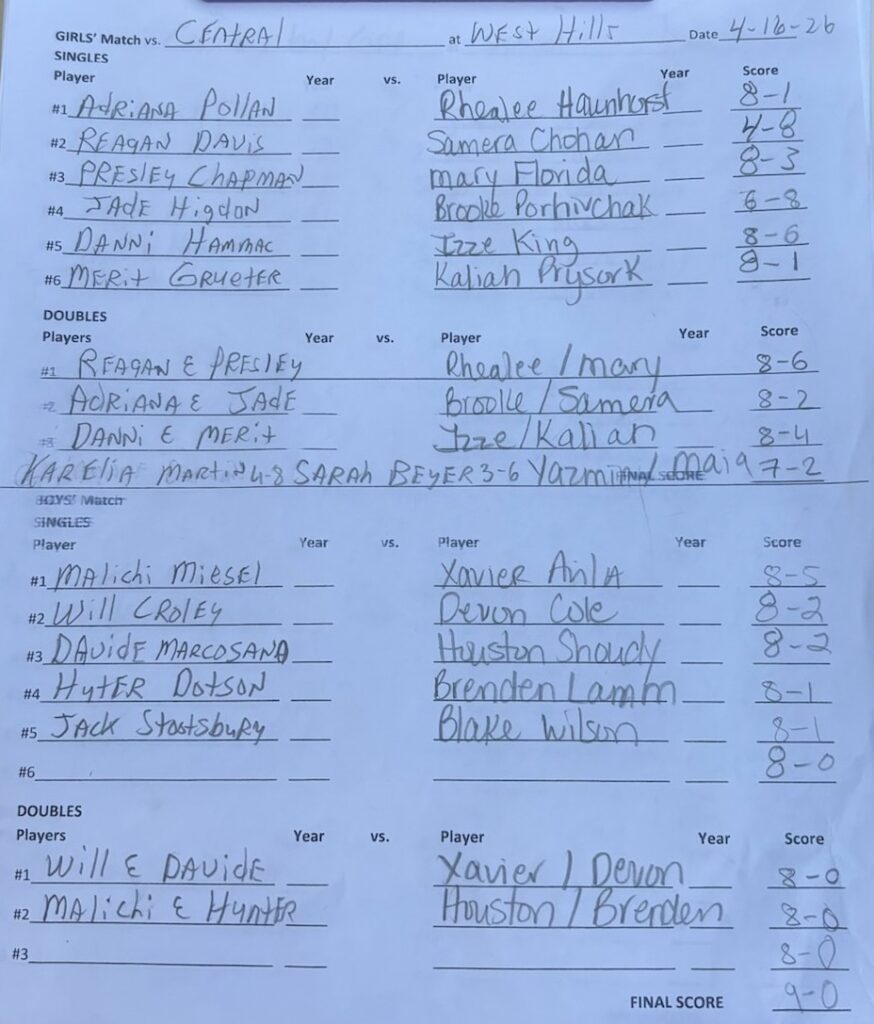 GIRLS' Match vs. CENTRAL at WEST Hills Date 4-16-26
SINGLES
Player Year vs. Player Year Score
#1 ADRIANA POLLAN Rhealee Haunhorst 8-1
#2 REAGAN DAVIS Samera Chohan 4-8
#3 PRESLEY CHAPMAN Mary Florida 8-3
#4 JADE HigDON Brooke Porhivchak 6-8
#5 DANNi HAMMAC Izze King 8-6
#6 MERit GRUETER Kaliah Prysork 8-1
DOUBLES
Players Year vs. Player Year Score
#1 REAGAN & PRESLEY Rhealee / Mary 8-6
#2 ADRIANA & JADE Brooke / Samera 8-2
#3 DANNi & MERit Izze/Kaliah 8-4
KARELIA MARTiN 4-8 SARAh BEYER 3-6 Yazmin / Maia FINAL SCORE 7-2
BOYS' Match
SINGLES
Player Year vs. Player Year Score
#1 MALichi MIESEL Xavier 8-5
#2 Will CROLEY Devon Cole 8-2
#3 DAVIDE MARCOSANA Houston Shoudy 8-2
#4 HyTER DOTSON Brenden Lamm 8-1
#5 JACK Stootsbury Blake Wilson 8-1
#6 8-0
DOUBLES
Players Year vs. Player Year Score
#1 Will & DAViDE Xavier / Devon 8-0
#2 MALichi & HUNTER Houston / Brenden 8-0
#3 8-0
FINAL SCORE 9-0